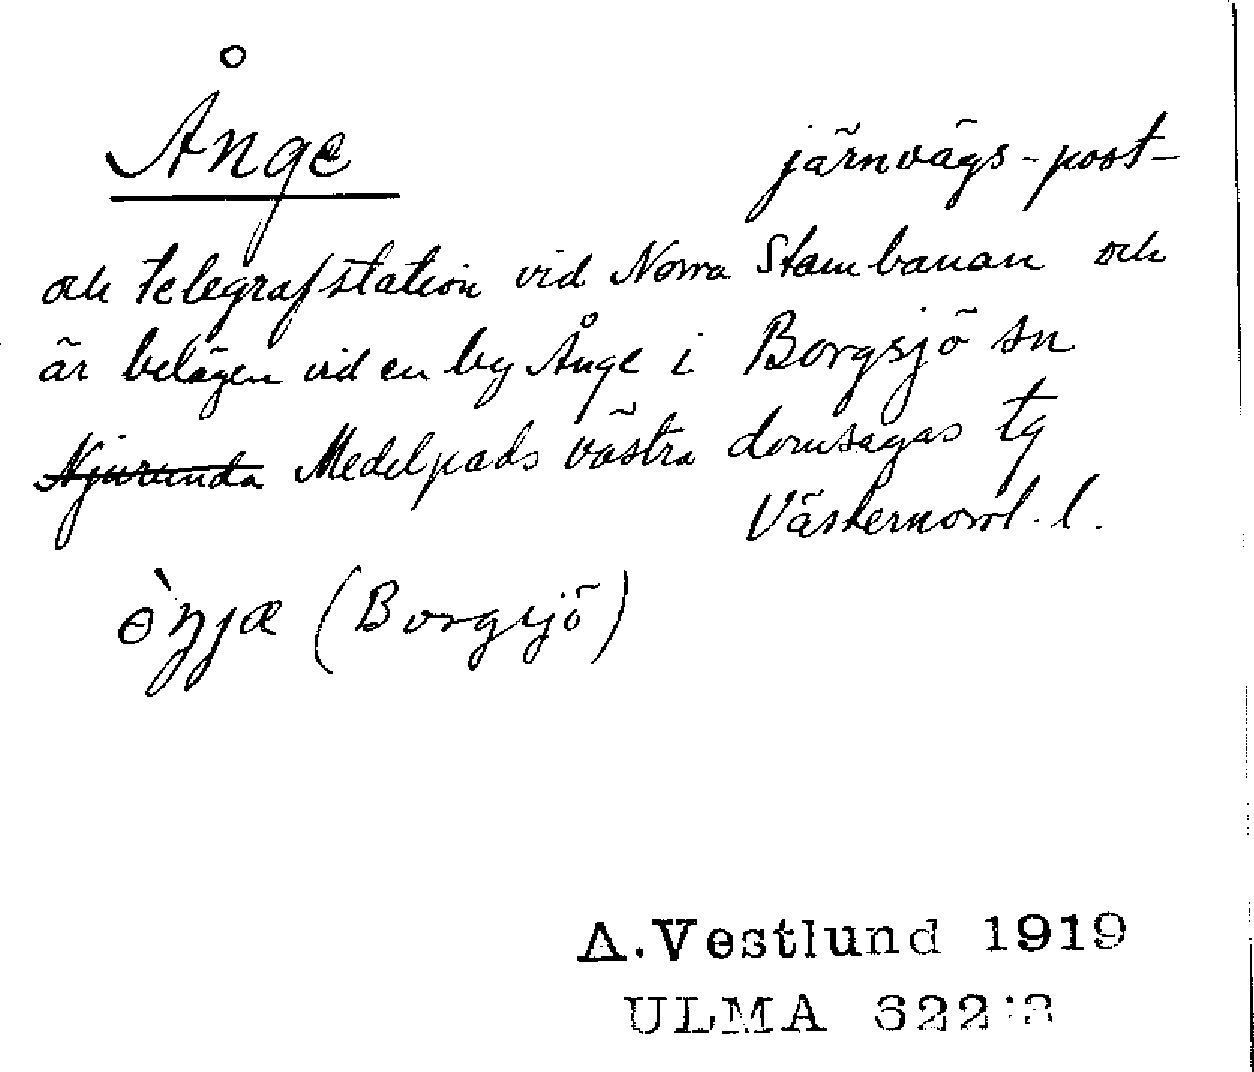 Ånge järnvägs-post-
och telegrafstation vid Norra Stambanan och
är belägen vid en by Ånge i Borgsjö sn
Njurunda Medelpads västra domsagas tg
Västernorrl. l.
(Borgsjö)
A. Vestlund 1919
ULMA 622:3